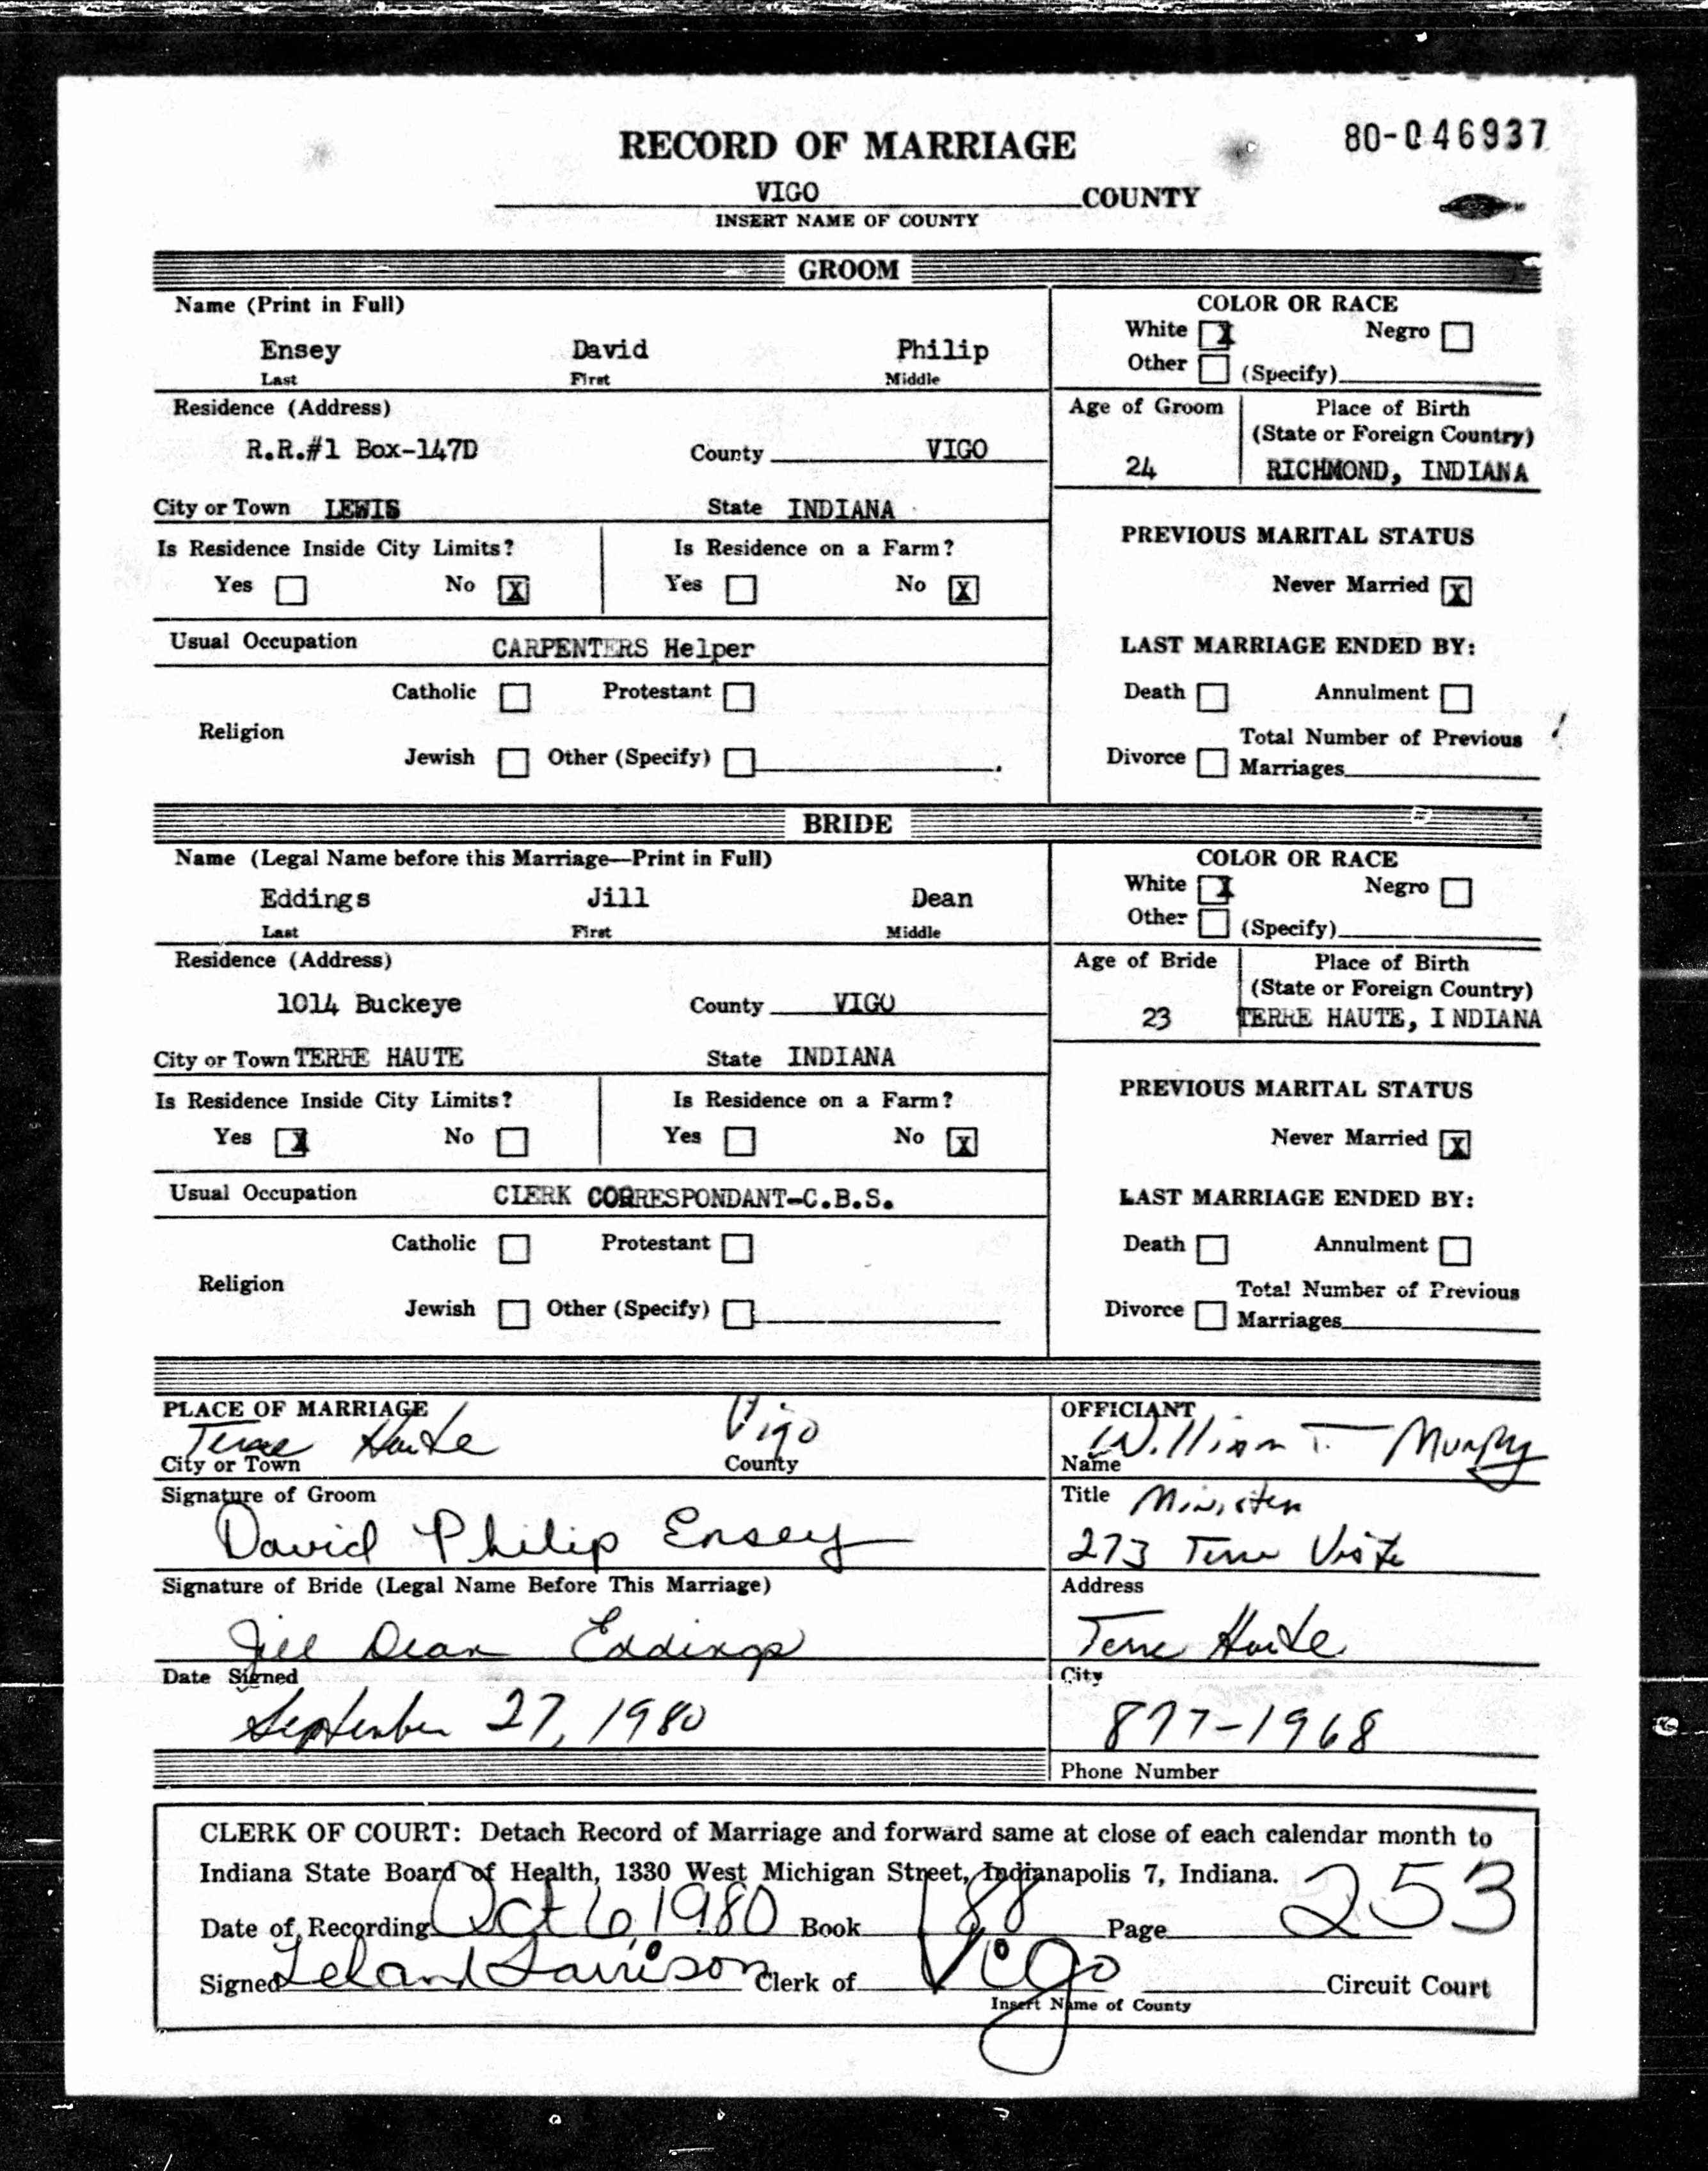 RECORD OF MARRIAGE
80-046937
VIGO COUNTY
INSERT NAME OF COUNTY
GROOM
Name (Print in Full)
Ensey David Philip
Last First Middle
COLOR OR RACE
White X Negro
Other (Specify)
Residence (Address)
R.R.#1 Box-147D County VIGO
City or Town LEWIS State INDIANA
Age of Groom
24
Place of Birth
(State or Foreign Country)
RICHMOND, INDIANA
Is Residence Inside City Limits? Is Residence on a Farm?
Yes No X Yes No X
PREVIOUS MARITAL STATUS
Never Married X
Usual Occupation CARPENTERS Helper
LAST MARRIAGE ENDED BY:
Catholic Protestant
Religion
Jewish Other (Specify)
Death Annulment
Total Number of Previous
Divorce Marriages
BRIDE
Name (Legal Name before this Marriage—Print in Full)
Eddings Jill Dean
Last First Middle
COLOR OR RACE
White X Negro
Other (Specify)
Residence (Address)
1014 Buckeye County VIGO
City or Town TERRE HAUTE State INDIANA
Age of Bride
23
Place of Birth
(State or Foreign Country)
TERRE HAUTE, I NDIANA
Is Residence Inside City Limits? Is Residence on a Farm?
Yes X No Yes No X
PREVIOUS MARITAL STATUS
Never Married X
Usual Occupation CLERK CORRESPONDANT-C.B.S.
LAST MARRIAGE ENDED BY:
Catholic Protestant
Religion
Jewish Other (Specify)
Death Annulment
Total Number of Previous
Divorce Marriages
PLACE OF MARRIAGE
Terre Haute Vigo
City or Town County
Signature of Groom
David Philip Ensey
Signature of Bride (Legal Name Before This Marriage)
Jill Dean Eddings
Date Signed
September 27, 1980
OFFICIANT
William T. Murphy
Name
Title Minister
273 Terre Vista
Address
Terre Haute
City
877-1968
Phone Number
CLERK OF COURT: Detach Record of Marriage and forward same at close of each calendar month to
Indiana State Board of Health, 1330 West Michigan Street, Indianapolis 7, Indiana.
Date of Recording Oct 6, 1980 Book 188 Page 253
Signed Leland Larrison Clerk of Vigo Circuit Court
Insert Name of County